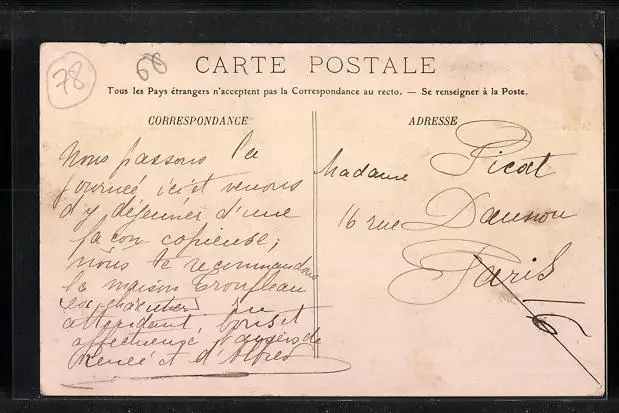 78
68
CARTE POSTALE
Tous les Pays étrangers n'acceptent pas la Correspondance au recto. — Se renseigner à la Poste.
CORRESPONDANCE
Nous passons la
journée ici et venons
d'y déjeuner d'une
façon copieuse,
nous te recommandons
la maison
attendant, bons et
affectueux baisers de
Renée et d'Albert
ADRESSE
Madame Picat
16 rue Daunou
Paris